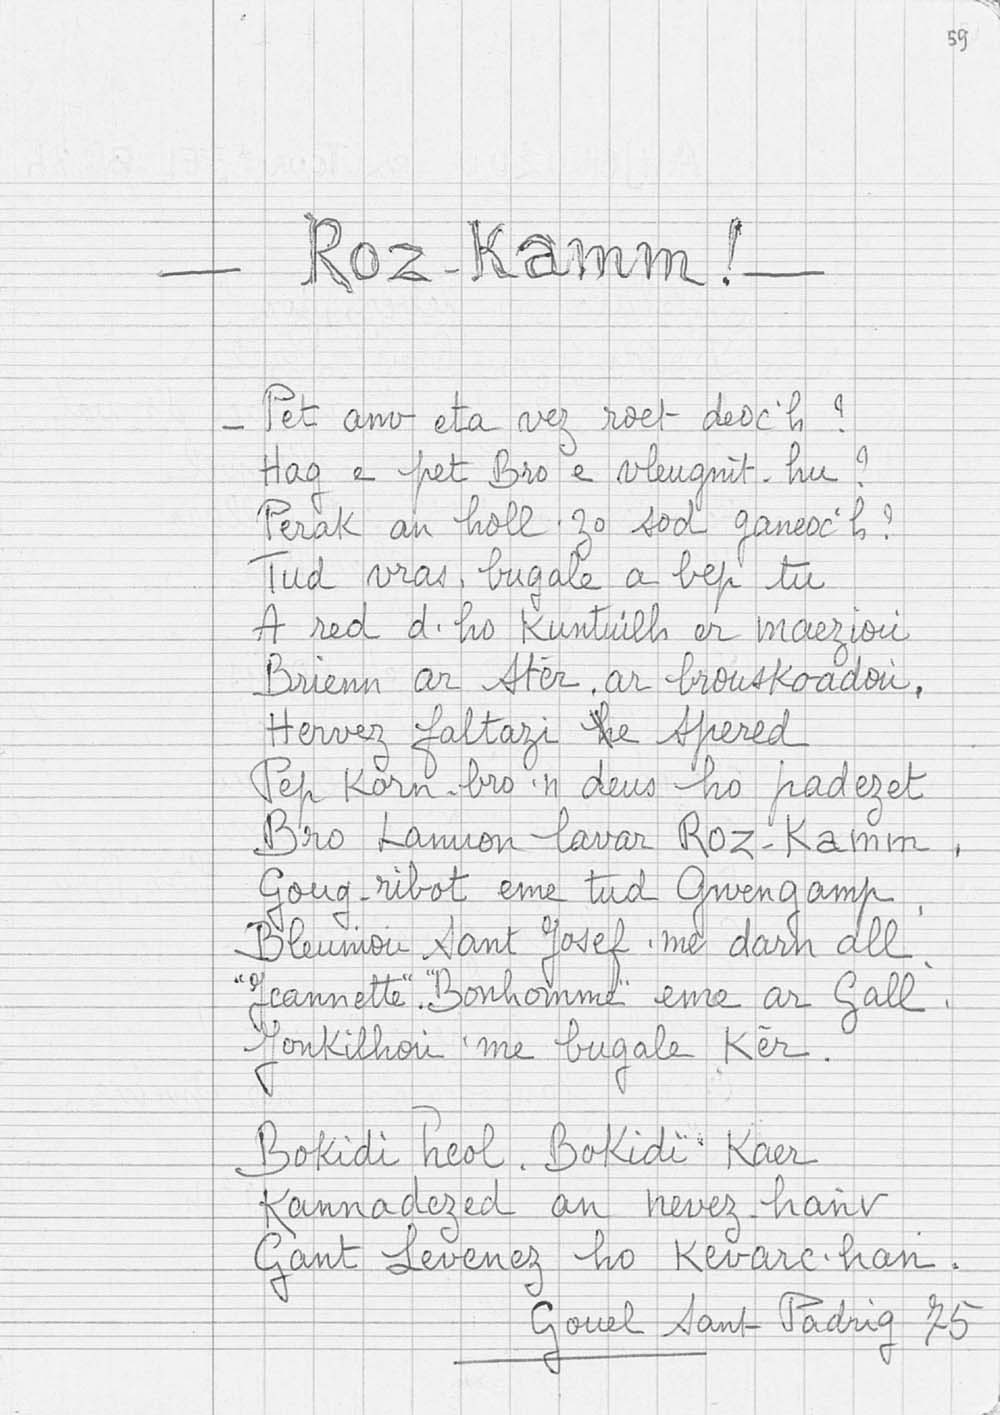 59
— Roz-Kamm! —
- Pet anv eta vez roet deoc'h ?
Hag e pet Bro e vleugnit-hu ?
Perak an holl zo sod ganeoc'h ?
Tud vras, bugale a bep tu
A red d'ho Kuntuilh er maeziou
Brienn ar Stêr, ar brouskoadou,
Hervez faltazi he spered
Pep Korn-bro 'n deus ho padezet
Bro Lannon lavar Roz-Kamm,
Goug-ribot eme tud Gwengamp,
Bleuniou Sant Josef 'me darn all,
"Jeannette". "Bonhomme" eme ar Gall.
Jonkilhou 'me bugale Kêr.
Bokidi heol. Bokidi Kaer
Kannadezed an nevez-hañv
Gant Levenez ho Kevarc'han.
Gouel Sant Padrig 75